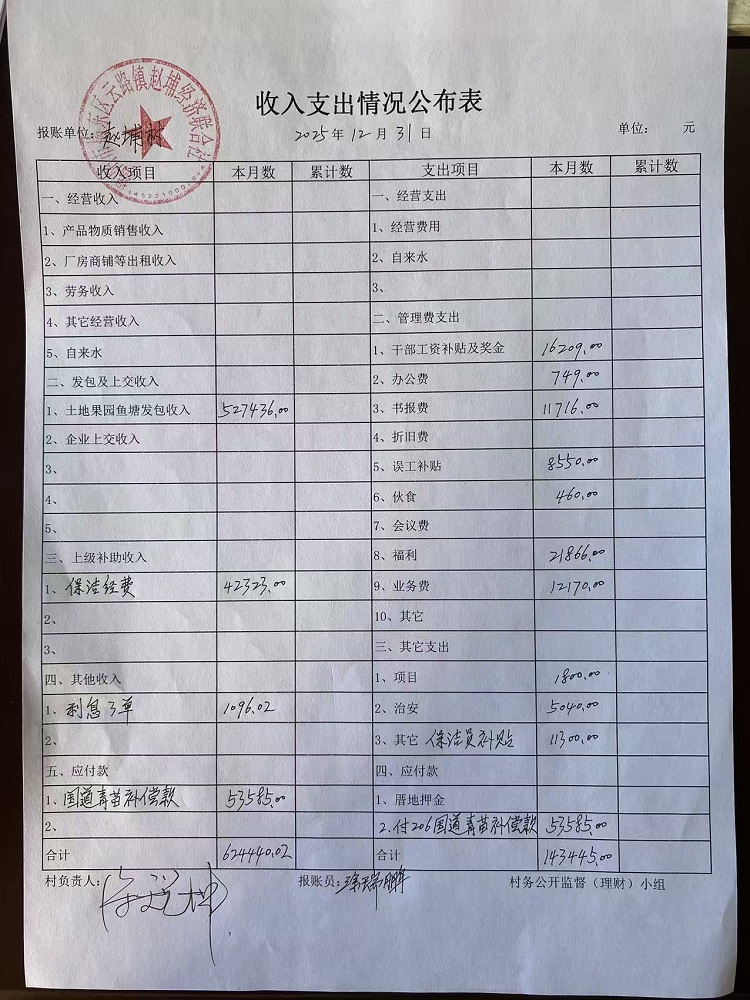 收入支出情况公布表
报账单位：赵埔村 2025年12月31日 单位： 元
东区云路镇赵埔经济联合社
收入项目 本月数 累计数 支出项目 本月数 累计数
一、经营收入 一、经营支出
1、产品物质销售收入 1、经营费用
2、厂房商铺等出租收入 2、自来水
3、劳务收入 3、
4、其它经营收入 二、管理费支出
5、自来水 1、干部工资补贴及奖金 16209.00
二、发包及上交收入 2、办公费 749.00
1、土地果园鱼塘发包收入 527436.00 3、书报费 11716.00
2、企业上交收入 4、折旧费
3、 5、误工补贴 8550.00
4、 6、伙食 460.00
5、 7、会议费
三、上级补助收入 8、福利 21866.00
1、保洁经费 42323.00 9、业务费 12170.00
2、 10、其它
3、 三、其它支出
四、其他收入 1、项目 1800.00
1、利息3单 1096.02 2、治安 5040.00
2、 3、其它 保洁员补贴 11300.00
五、应付款 四、应付款
1、国道青苗补偿款 53585.00 1、厝地押金
2、 2.付206国道青苗补偿款 53585.00
合计 624440.02 合计 143445.00
村负责人： 报账员： 村务公开监督（理财）小组